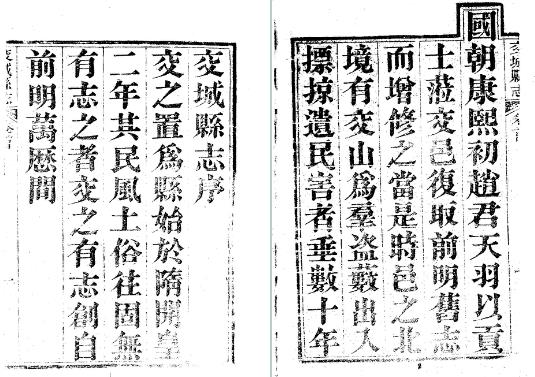 交城縣志序
交之置爲縣始於隋開皇
二年其民風土俗往固無
有志之者交之有志創自
前明萬歷間
交城縣志 卷首
交城縣志 卷首
國朝康熙初趙君天羽以貢
士蒞交邑復取前明舊志
而增修之當是時邑之北
境有交山爲羣盜藪出入
摽掠遺民害者垂數十年